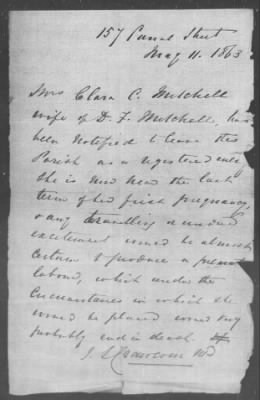 157 Canal Street
May 11. 1863
Mrs Clara C. Mitchell
wife of D. F. Mitchell, has
been notified to leave this
Parish as a registered enemy
She is now near the last
term of her first pregnancy,
& any travelling or undue
excitement would be almost
certain to produce a premat
labour, which under the
Circumstances in which she
would be placed would very
probably end in death.
MD